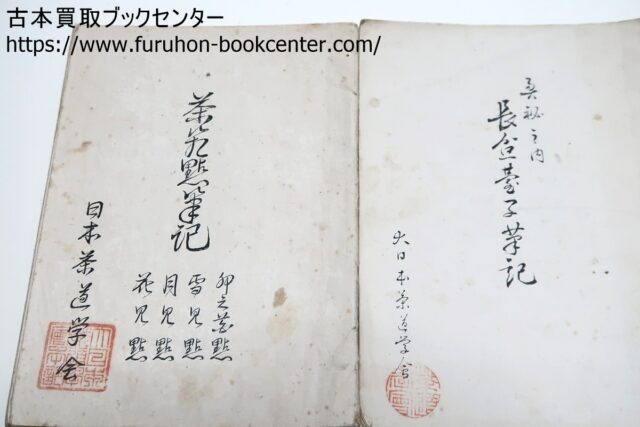 古本買取ブックセンター
https://www.furuhon-bookcenter.com/
奥秘之内
長盆臺子筆記
大日本茶道学會
茶箱點筆記
卯之花點
雪見點
月見點
花見點
日本茶道学會